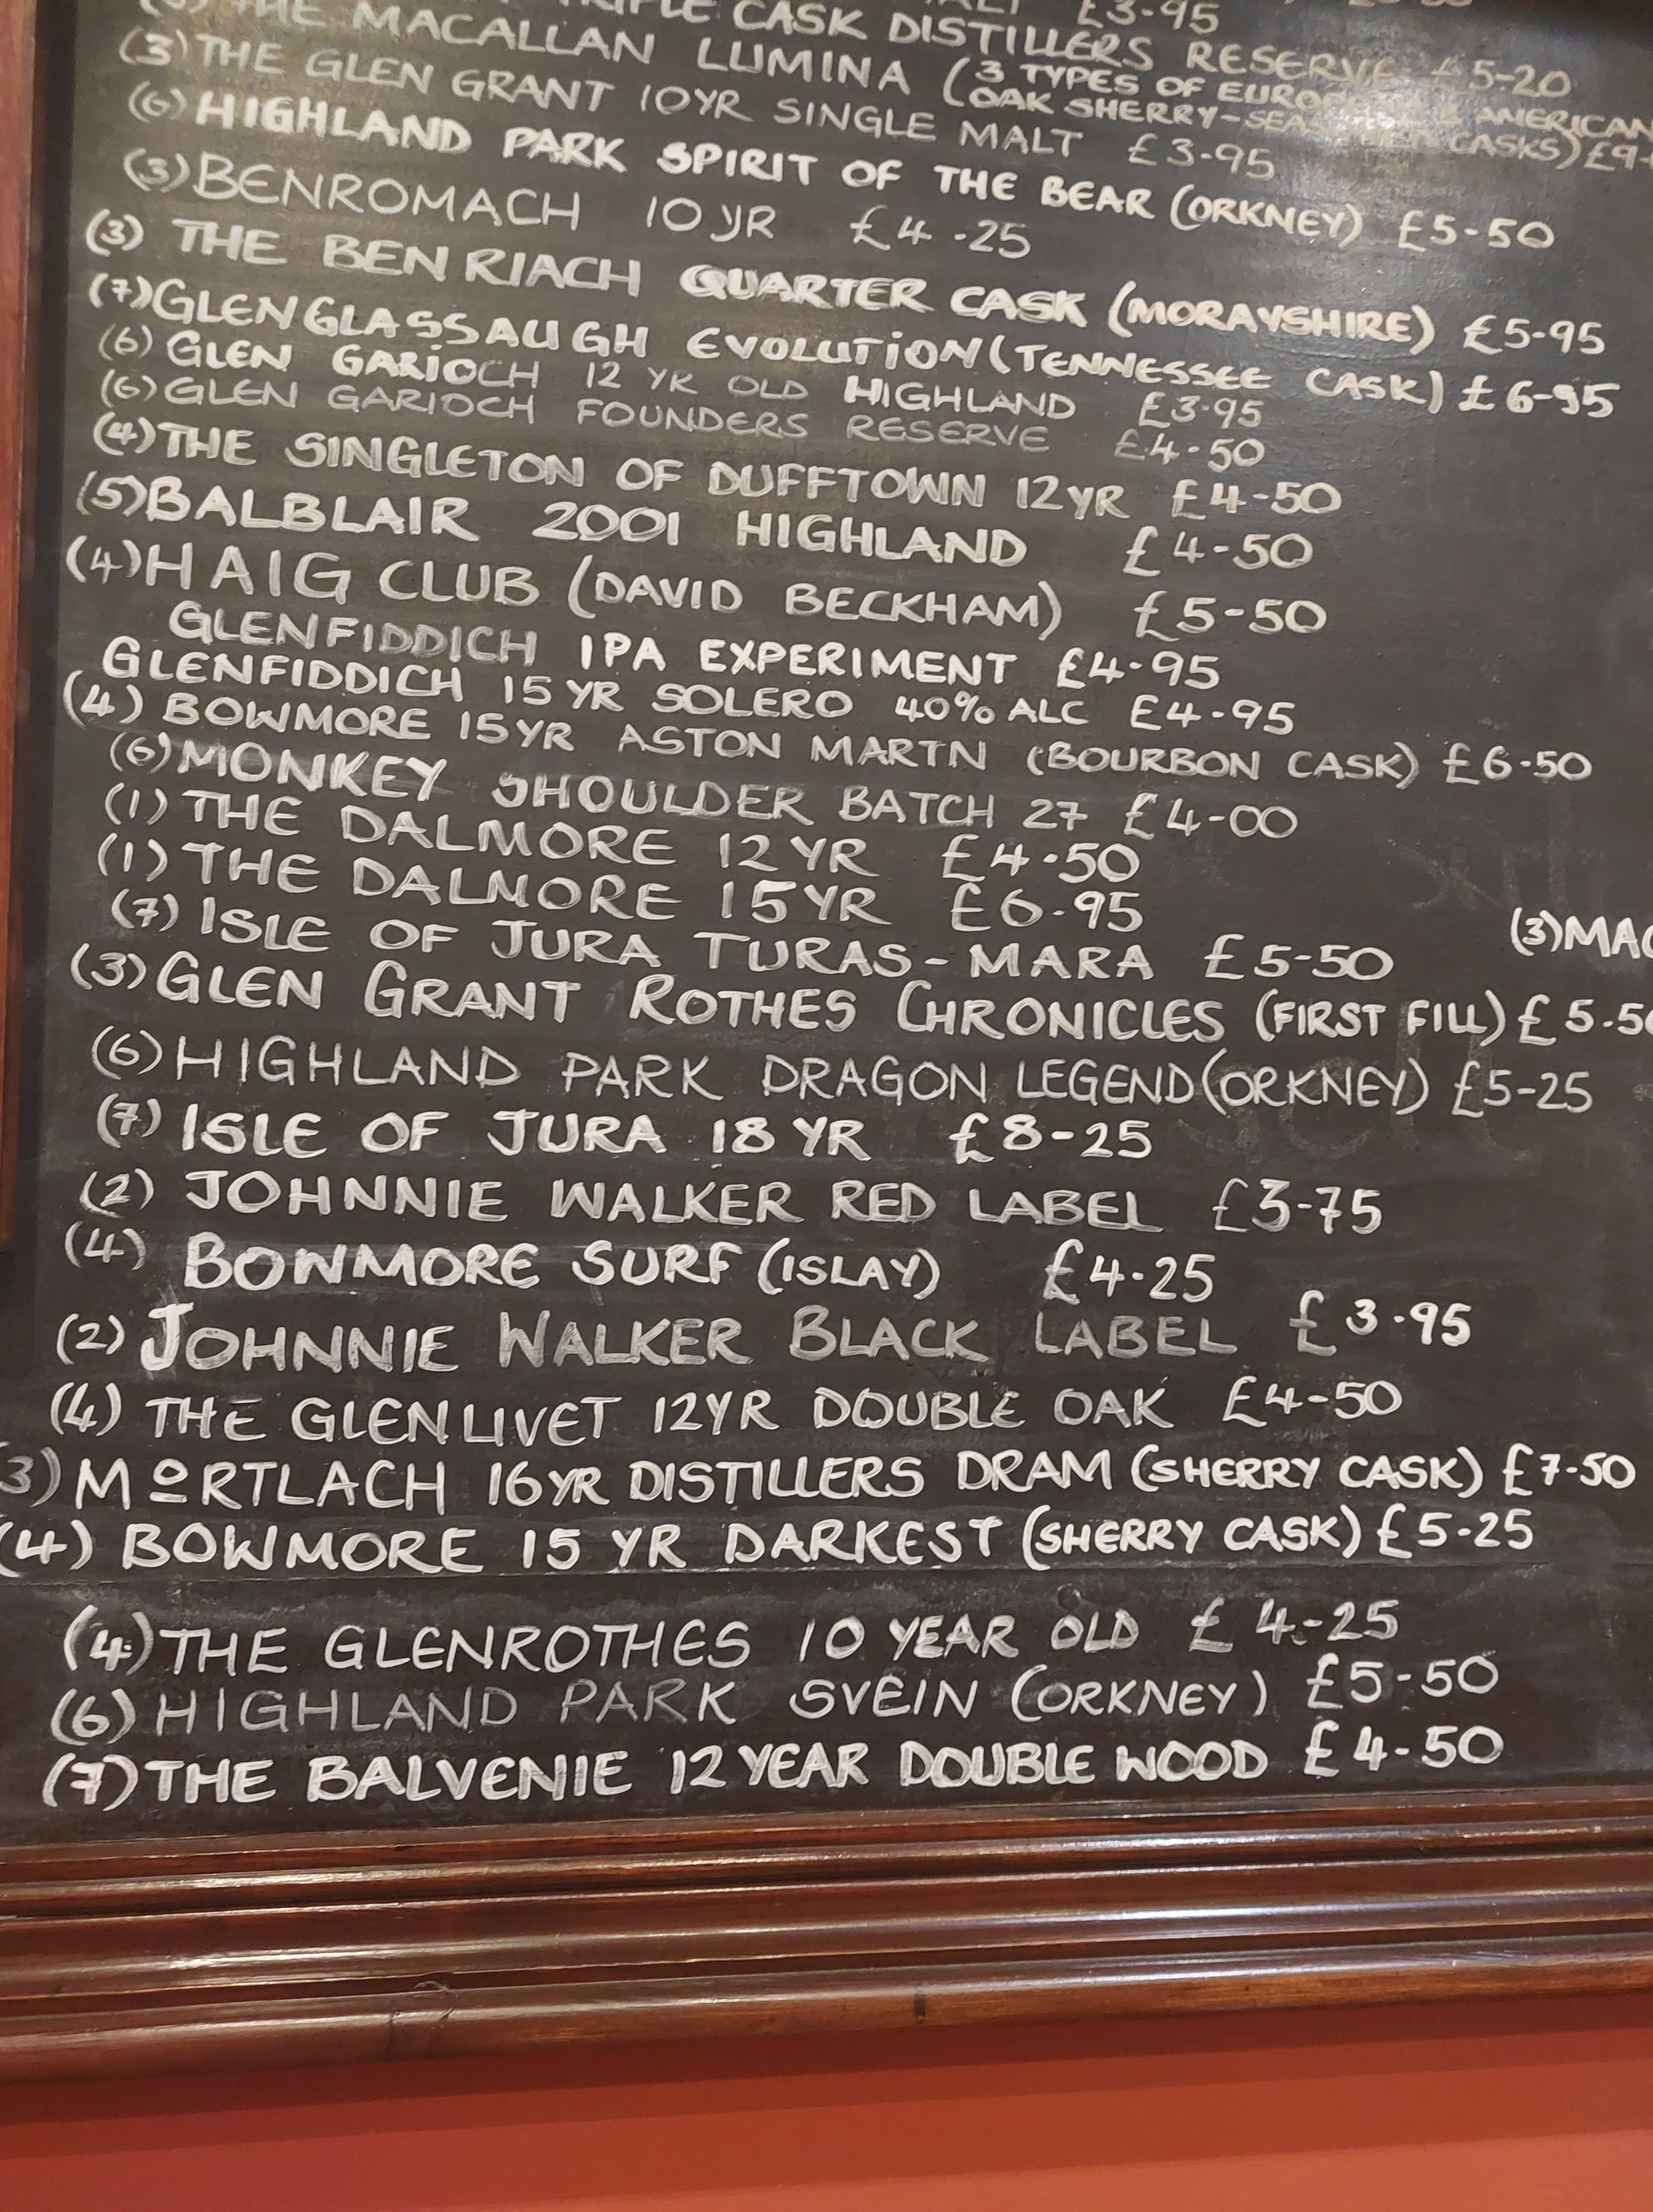 £3-95
TRIPLE CASK DISTILLERS RESERVE £5-20
THE MACALLAN LUMINA (3 TYPES OF EUROPEAN & AMERICAN
OAK SHERRY-SEASONED CASKS) £9-
(3) THE GLEN GRANT 10YR SINGLE MALT £3-95
(6) HIGHLAND PARK SPIRIT OF THE BEAR (ORKNEY) £5-50
(3) BENROMACH 10 YR £4-25
(3) THE BENRIACH QUARTER CASK (MORAYSHIRE) £5-95
(7) GLENGLASSAUGH EVOLUTION (TENNESSEE CASK) £6-95
(6) GLEN GARIOCH 12 YR OLD HIGHLAND £3-95
(6) GLEN GARIOCH FOUNDERS RESERVE £4-50
(4) THE SINGLETON OF DUFFTOWN 12YR £4-50
(5) BALBLAIR 2001 HIGHLAND £4-50
(4) HAIG CLUB (DAVID BECKHAM) £5-50
GLENFIDDICH IPA EXPERIMENT £4-95
GLENFIDDICH 15 YR SOLERO 40% ALC £4-95
(4) BOWMORE 15YR ASTON MARTN (BOURBON CASK) £6-50
(6) MONKEY SHOULDER BATCH 27 £4-00
(1) THE DALMORE 12YR £4-50
(1) THE DALMORE 15YR £6-95
(7) ISLE OF JURA TURAS-MARA £5-50
(3) MAC
(3) GLEN GRANT ROTHES CHRONICLES (FIRST FILL) £5-50
(6) HIGHLAND PARK DRAGON LEGEND (ORKNEY) £5-25
(7) ISLE OF JURA 18 YR £8-25
(2) JOHNNIE WALKER RED LABEL £3-75
(4) BOWMORE SURF (ISLAY) £4-25
(2) JOHNNIE WALKER BLACK LABEL £3-95
(4) THE GLENLIVET 12YR DOUBLE OAK £4-50
3) MORTLACH 16YR DISTILLERS DRAM (SHERRY CASK) £7-50
(4) BOWMORE 15 YR DARKEST (SHERRY CASK) £5-25
(4) THE GLENROTHES 10 YEAR OLD £4-25
(6) HIGHLAND PARK SVEIN (ORKNEY) £5-50
(7) THE BALVENIE 12 YEAR DOUBLE WOOD £4-50